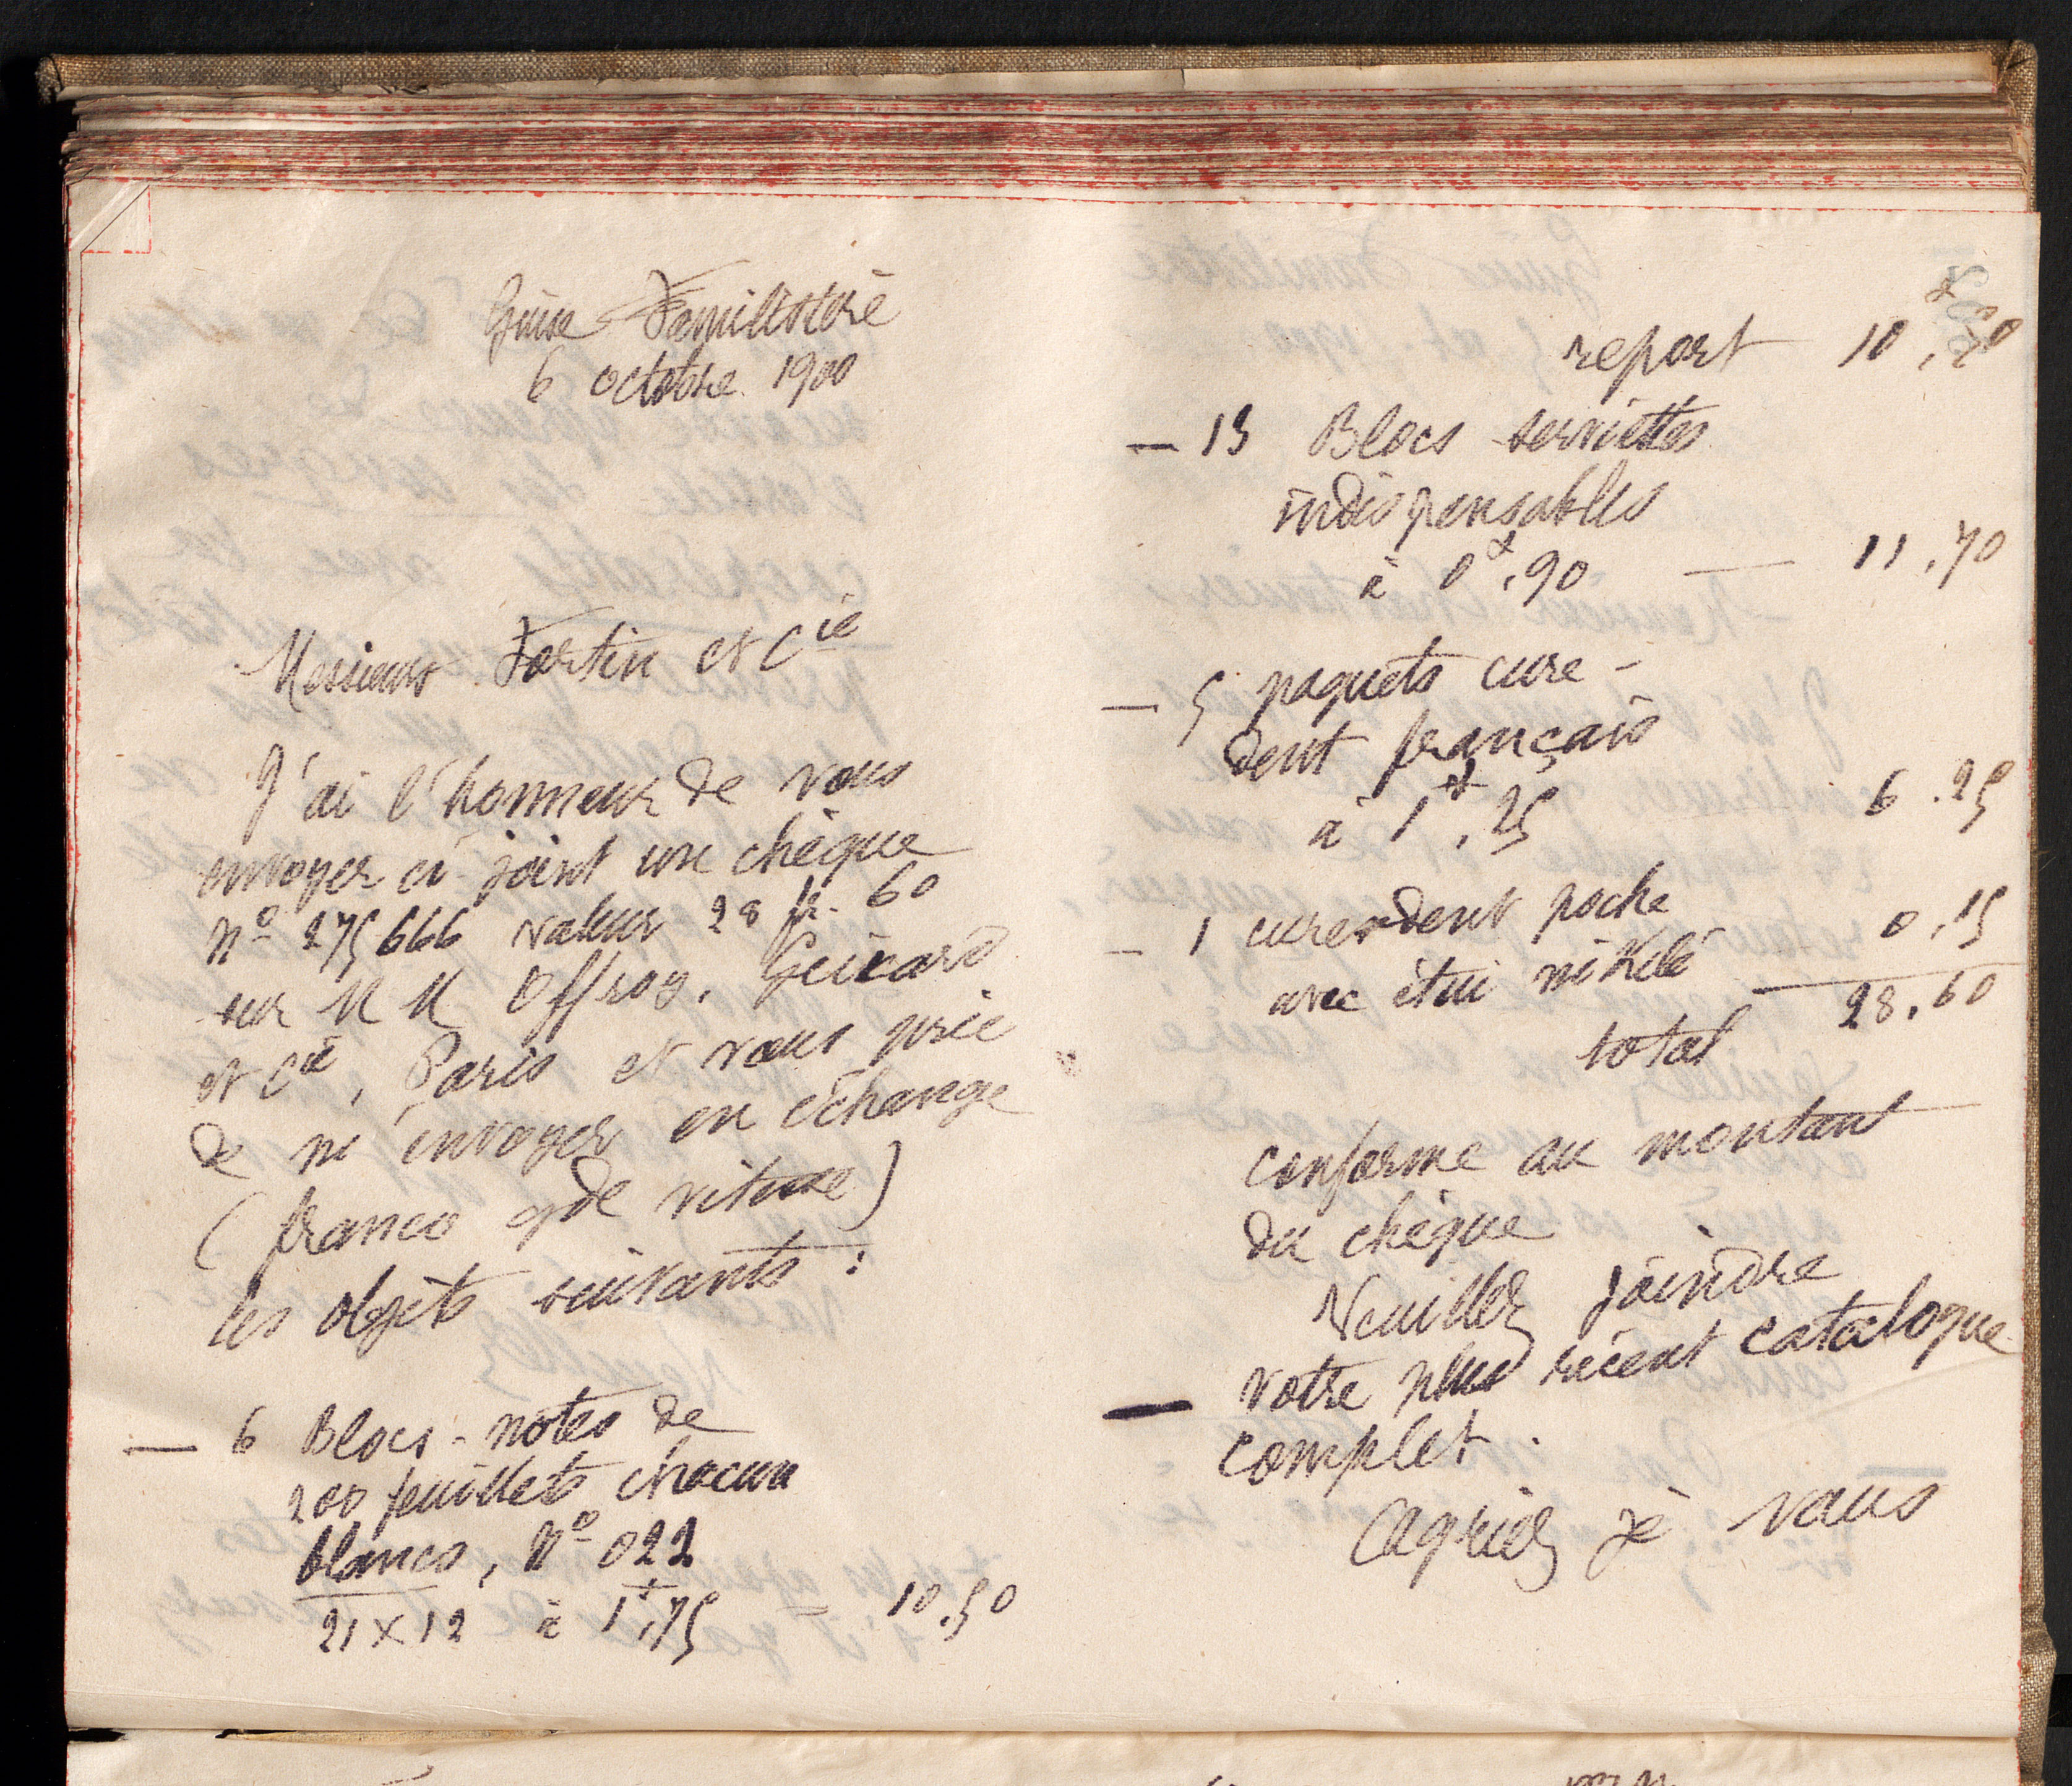 Guise Familistère
6 octobre 1900
Messieurs Fortin et Cie
J'ai l'honneur de vous
envoyer ci-joint un chèque
No 275666 valeur 28 fr. 60
sur M M Offroy, Guiard
et Cie, Paris et vous prie
de m'envoyer en échange
(franco gde vitesse)
les objets suivants :
— 6 Blocs-notes de
200 feuillets chacun
blancs, No 022
21 x 12 à 1f,75 — 10.50
report 10f,50
— 13 Blocs serviettes
indispensables
à 0f,90 — 11,70
— 5 paquets cure-
dent français
à 1f,25 6.25
— 1 cure-dent poche
avec étui nikelé 0,15
total 28,60
conforme au montant
du chèque
Veuillez joindre
— votre plus récent catalogue
complet.
Agréez je vous